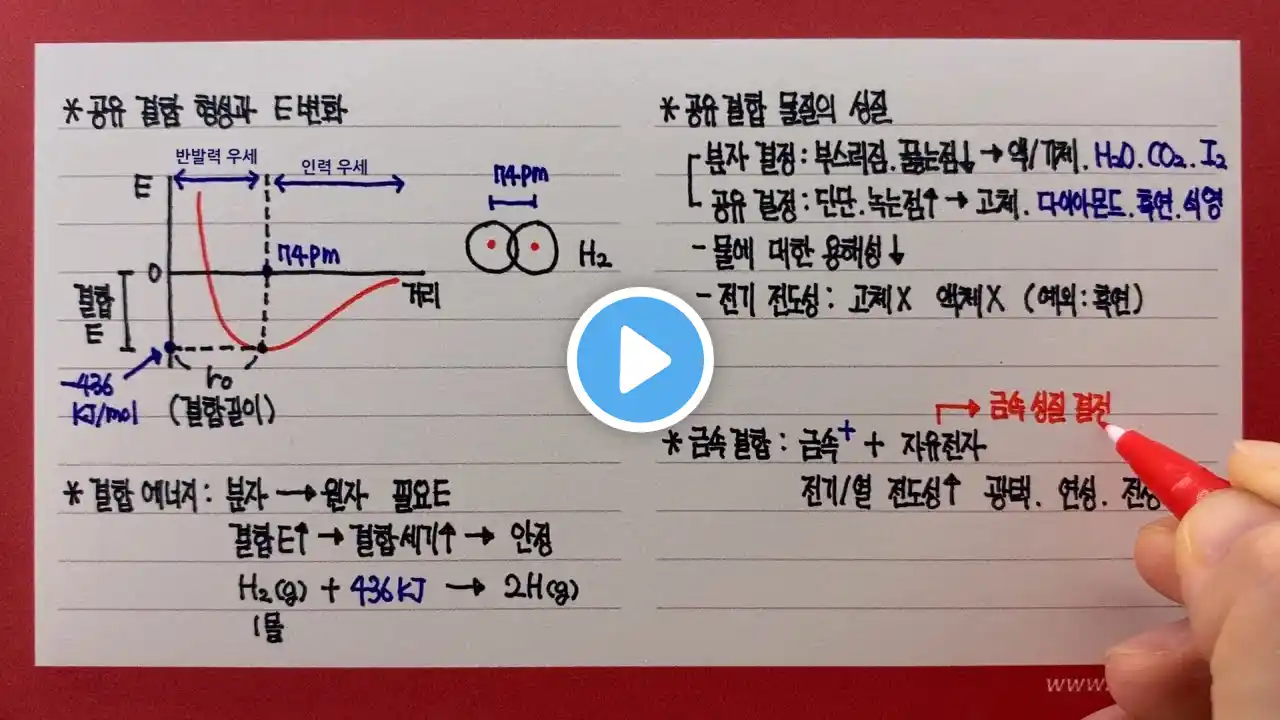 * 공유 결합 형성과 E변화
반발력 우세
인력 우세
74pm
E
74pm
0
거리
H₂
결합
E
r₀
-436
KJ/mol
(결합길이)
* 결합 에너지: 분자 → 원자 필요E
결합E↑ → 결합세기↑ → 안정
H₂(g) + 436KJ → 2H(g)
1몰
* 공유 결합 물질의 성질
분자 결정: 부스러짐. 끓는점↓ → 액/기체. H₂O. CO₂. I₂
공유 결정: 단단. 녹는점↑ → 고체. 다이아몬드. 흑연. 석영
- 물에 대한 용해성↓
- 전기 전도성: 고체X 액체X (예외: 흑연)
→ 금속 성질 결정
* 금속 결합: 금속⁺ + 자유전자
전기/열 전도성↑ 광택. 연성. 전성
www.